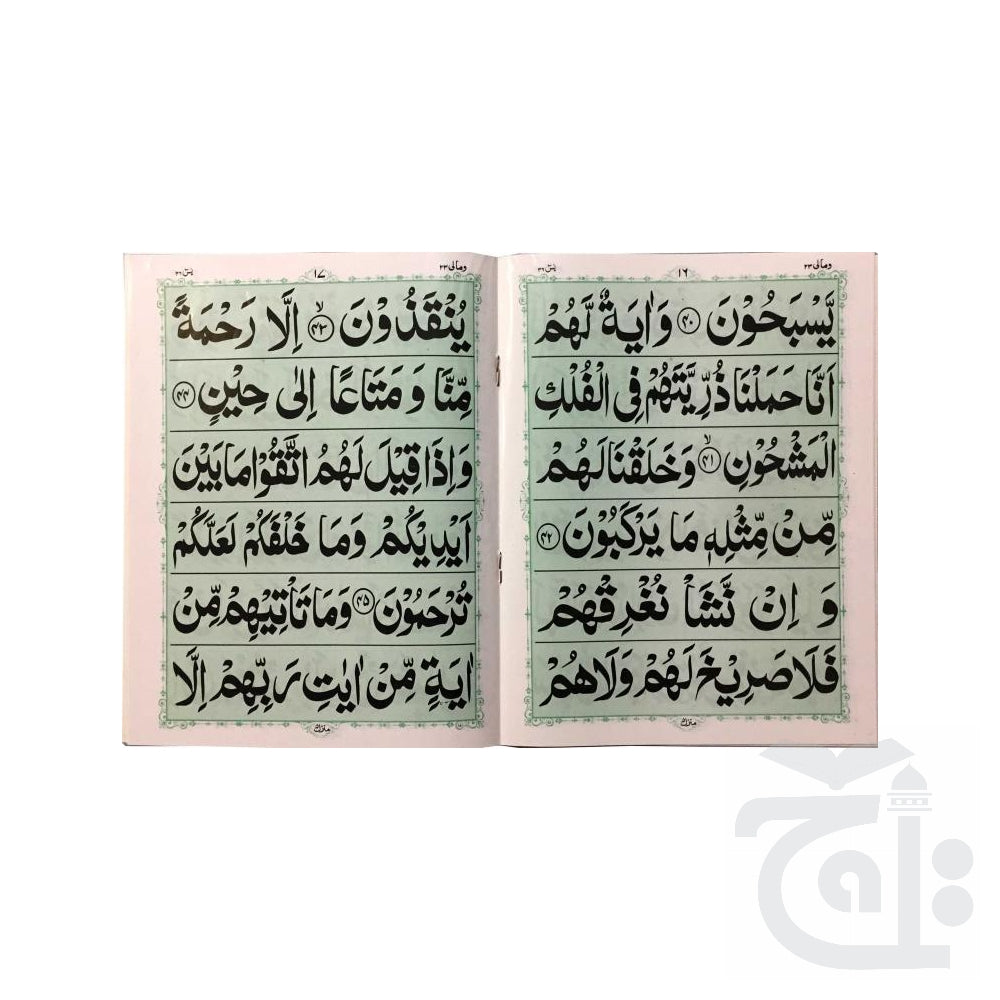 ومالی ۲۳
۱۶
یٰسٓ ۳۶
یَّسْبَحُوْنَ ﴿۴۰﴾ وَاٰیَةٌ لَّهُمْ
اَنَّا حَمَلْنَا ذُرِّیَّتَهُمْ فِی الْفُلْكِ
الْمَشْحُوْنِ ﴿۴۱﴾ۙ وَخَلَقْنَا لَهُمْ
مِّنْ مِّثْلِهٖ مَا یَرْكَبُوْنَ ﴿۴۲﴾
وَ اِنْ نَّشَاْ نُغْرِقْهُمْ
فَلَا صَرِیْخَ لَهُمْ وَلَا هُمْ
منزل ۵
ومالی ۲۳
۱۷
یٰسٓ ۳۶
یُنْقَذُوْنَ ﴿۴۳﴾ۙ اِلَّا رَحْمَةً
مِّنَّا وَ مَتَاعًا اِلٰی حِیْنٍ ﴿۴۴﴾
وَ اِذَا قِیْلَ لَهُمُ اتَّقُوْا مَا بَیْنَ
اَیْدِیْكُمْ وَمَا خَلْفَكُمْ لَعَلَّكُمْ
تُرْحَمُوْنَ ﴿۴۵﴾ وَمَا تَاْتِیْهِمْ مِّنْ
اٰیَةٍ مِّنْ اٰیٰتِ رَبِّهِمْ اِلَّا
منزل ۵